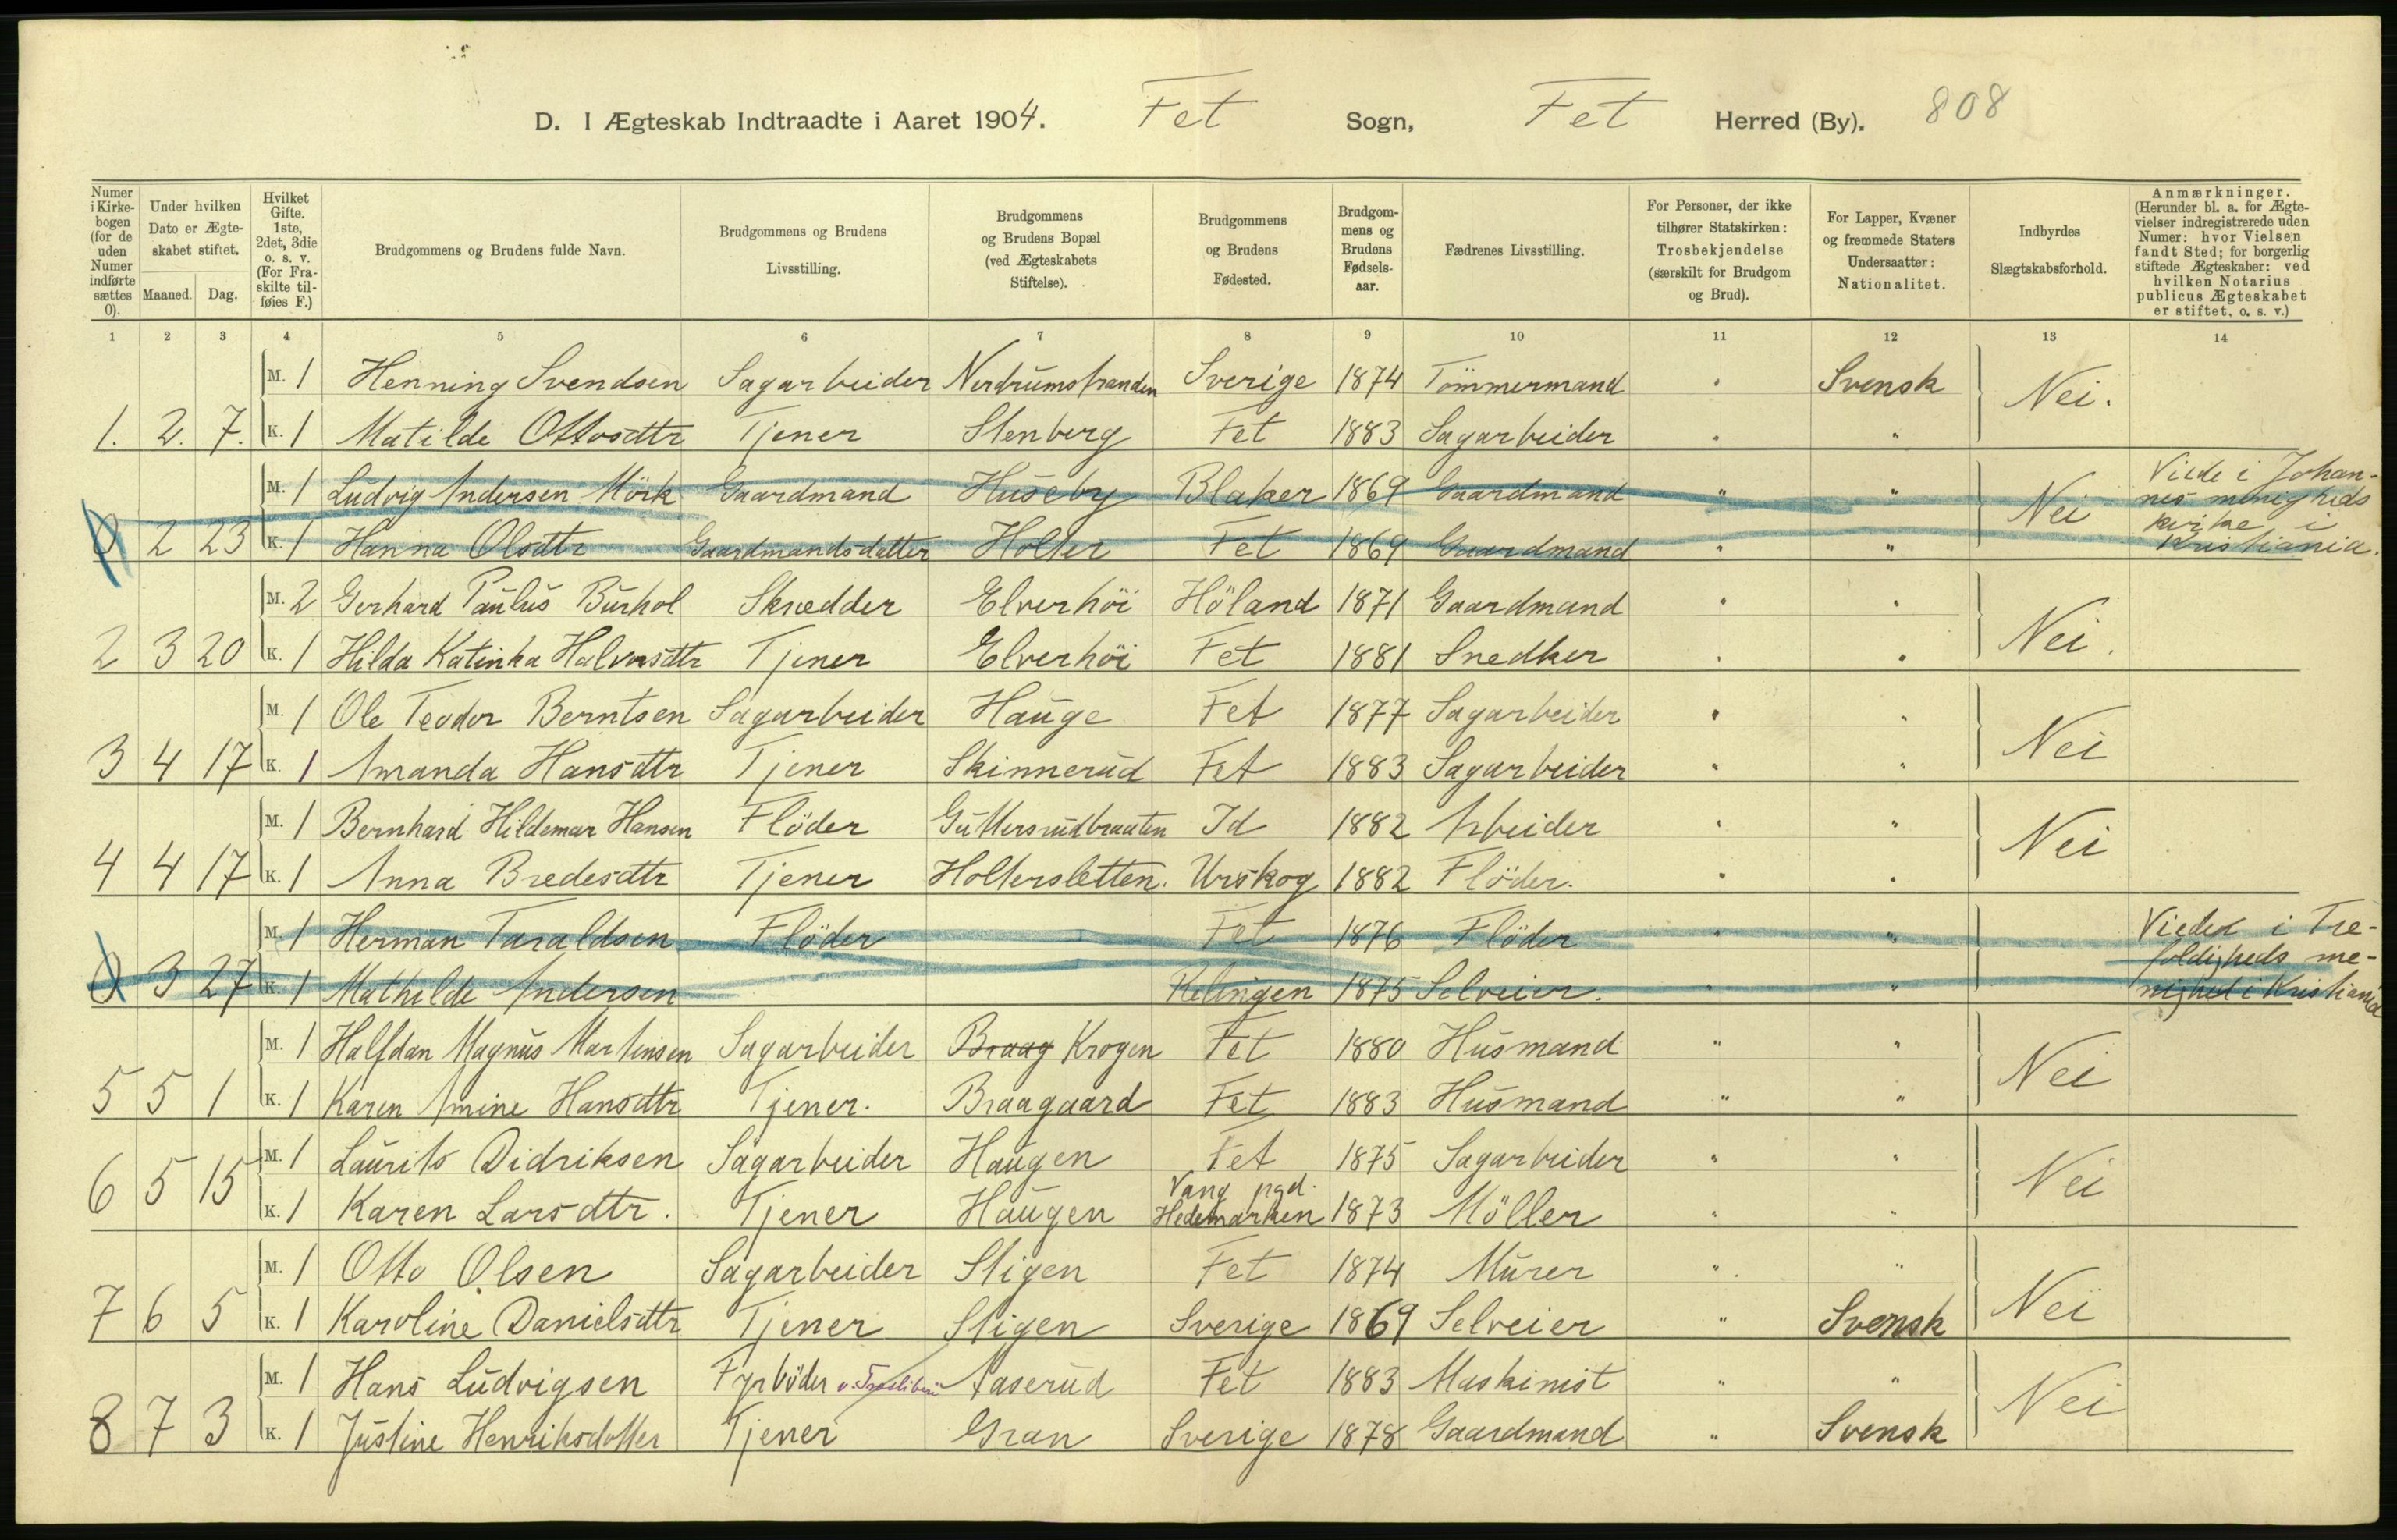 D. I Ægteskab Indtraadte i Aaret 1904. Fet Sogn, Fet Herred (By). 808
Numer i Kirkebogen (for de uden Numer indførte sættes 0). Under hvilken Dato er Ægteskabet stiftet. Maaned. Dag. Hvilket Gifte. 1ste, 2det, 3die o. s. v. (For Fraskilte tilføies F.) Brudgommens og Brudens fulde Navn. Brudgommens og Brudens Livsstilling. Brudgommens og Brudens Bopæl (ved Ægteskabets Stiftelse). Brudgommens og Brudens Fødested. Brudgommens og Brudens Fødselsaar. Fædrenes Livsstilling. For Personer, der ikke tilhører Statskirken: Trosbekjendelse (særskilt for Brudgom og Brud). For Lapper, Kvæner og fremmede Staters Undersaatter: Nationalitet. Indbyrdes Slægtskabsforhold. Anmærkninger. (Herunder bl. a. for Ægtevielser indregistrerede uden Numer: hvor Vielsen fandt Sted; for borgerlig stiftede Ægteskaber: ved hvilken Notarius publicus Ægteskabet er stiftet, o. s. v.)
1 2 3 4 5 6 7 8 9 10 11 12 13 14
M. 1 Henning Svendsen Sagarbeider Nerdrumstranden Sverige 1874 Tömmermand " Svensk
1. 2. 7. K. 1 Matilde Ottosdtr Tjener Stenberg Fet 1883 Sagarbeider " " Nei.
M. 1 Ludvig Andersen Mörk Gaardmand Huseby Blaker 1869 Gaardmand " " Viede i Johannes menigheds
0 2 23 K. 1 Hanna Olsdtr Gaardmandsdatter Holter Fet 1869 Gaardmand " " Nei kirke i Kristiania.
M. 2 Gerhard Paulus Burhol Skrædder Elverhöi Höland 1871 Gaardmand " "
2 3 20 K. 1 Hilda Katinka Halvorsdtr Tjener Elverhöi Fet 1881 Snedker " " Nei.
M. 1 Ole Teodor Berntsen Sagarbeider Hauge Fet 1877 Sagarbeider " "
3 4 17 K. 1 Amanda Hansdtr Tjener Skinnerud Fet 1883 Sagarbeider " " Nei
M. 1 Bernhard Hildemar Hansen Flöder Guttersrudbraaten Id 1882 Arbeider " "
4 4 17 K. 1 Anna Bredesdtr Tjener Holtersletten. Urskog 1882 Flöder. " " Nei
M. 1 Herman Taraldsen Flöder Fet 1876 Flöder " " Vieded i Tre-
0 3 27 K. 1 Mathilde Andersen Relingen 1875 Selveier. " " foldigheds menighed i Kristiania
M. 1 Halfdan Magnus Martinsen Sagarbeider Braag Krogen Fet 1880 Husmand " "
5 5 1 K. 1 Karen Amine Hansdtr Tjener. Braagaard Fet 1883 Husmand " " Nei
M. 1 Laurits Didriksen Sagarbeider Haugen Fet 1875 Sagarbeider " "
6 5 15 K. 1 Karen Larsdtr. Tjener Haugen Vang pgd. Hedemarken 1873 Möller " " Nei
M. 1 Otto Olsen Sagarbeider Stigen Fet 1874 Murer " "
7 6 5 K. 1 Karoline Danielsdtr Tjener Stigen Sverige 1869 Selveier " Svensk Nei
M. 1 Hans Ludvigsen Fyrböder Aaserud Fet 1883 Maskinist " "
8 7 3 K. 1 Justine Henriksdotter Tjener Gran Sverige 1878 Gaardmand " Svensk Nei